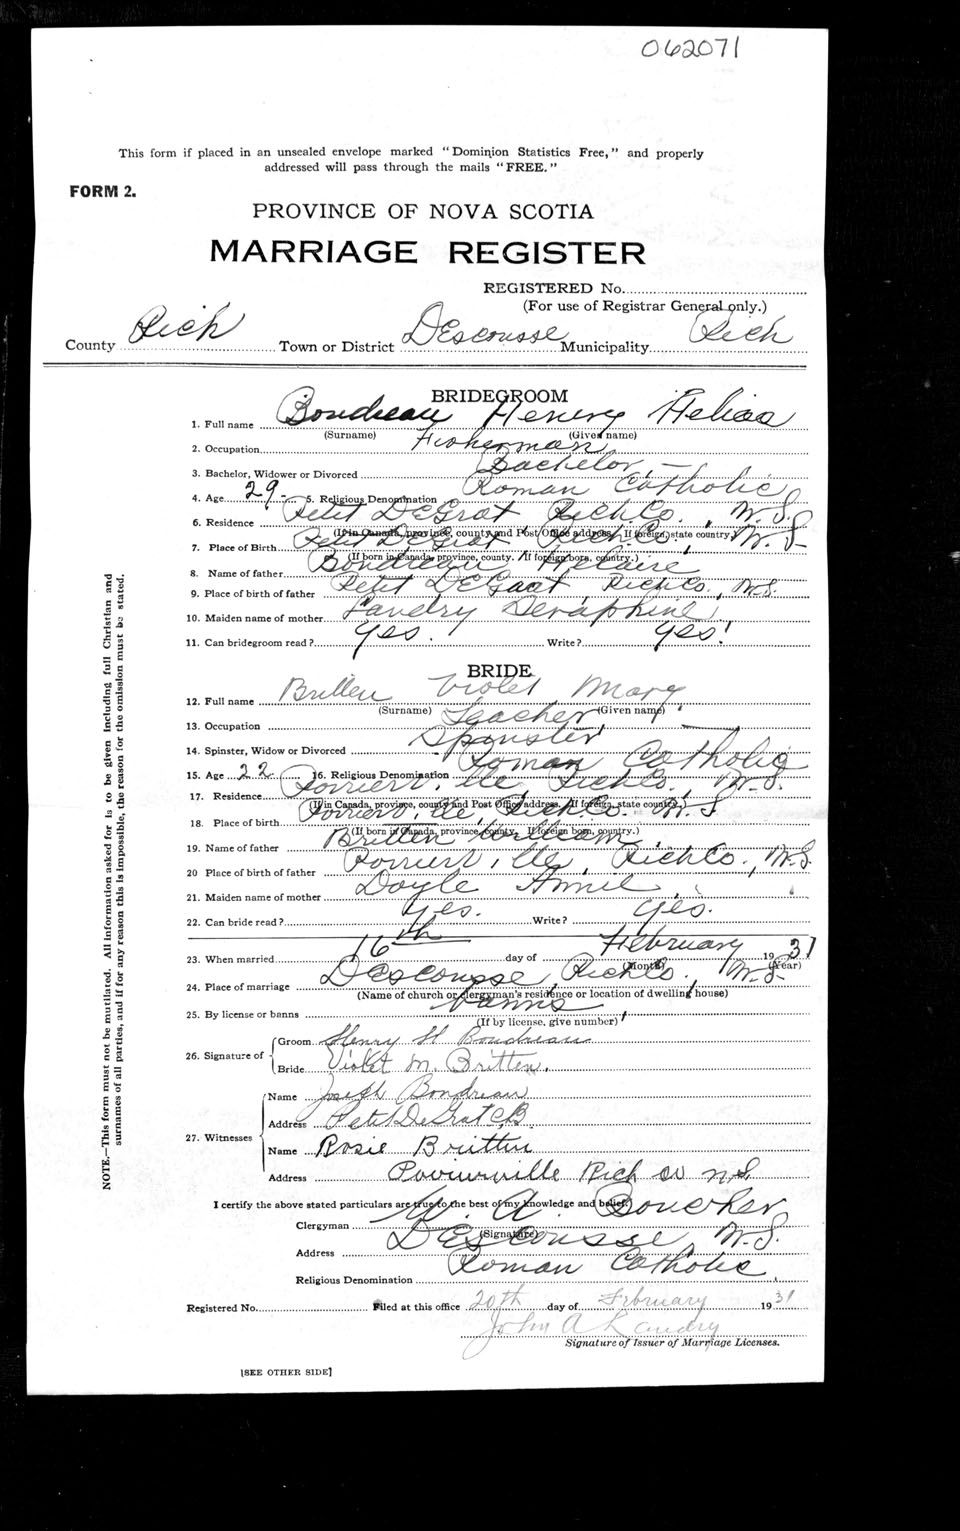 062071
This form if placed in an unsealed envelope marked "Dominion Statistics Free," and properly
addressed will pass through the mails "FREE."
FORM 2.
PROVINCE OF NOVA SCOTIA
MARRIAGE REGISTER
REGISTERED No.
(For use of Registrar General only.)
County Rich Town or District DEscousse Municipality Rich
BRIDEGROOM
1. Full name Boudreau Henry Helias
(Surname) (Given name)
2. Occupation Fisherman
3. Bachelor, Widower or Divorced Bachelor
4. Age 29 5. Religious Denomination Roman Catholic
6. Residence Petit DeGrat Rich Co., N.S.
(If in Canada, province, county and Post Office address. If foreign, state country.)
7. Place of Birth Petit DeGrat Rich Co., N.S.
(If born in Canada, province, county. If foreign born, country.)
8. Name of father Boudreau Helaire
9. Place of birth of father Petit DeGrat, Rich Co., N.S.
10. Maiden name of mother Landry Seraphine
11. Can bridegroom read? yes. Write? yes!
BRIDE
12. Full name Britten Violet Mary
(Surname) (Given name)
13. Occupation Teacher
14. Spinster, Widow or Divorced Spinster
15. Age 22 16. Religious Denomination Roman Catholic
17. Residence Poirier,ville, Rich Co., N.S.
(If in Canada, province, county and Post Office address. If foreign, state country.)
18. Place of birth Poirier,ville, Rich Co. N.S
(If born in Canada, province, county. If foreign born, country.)
19. Name of father Britten William
20 Place of birth of father Poirier,ville, Rich Co., N.S.
21. Maiden name of mother Doyle Annie
22. Can bride read? yes. Write? yes.
23. When married 16th day of February 1931
(Month) (Year)
24. Place of marriage DEscousse, Rich Co., N.S.
(Name of church or clergyman's residence or location of dwelling house)
25. By license or banns banns
(If by license, give number)
26. Signature of
Groom Henry H Boudreau
Bride Violet M. Britten.
27. Witnesses
Name Joseph Boudreau
Address Petit DeGrat C.B.
Name Rosie Britten
Address Poirierville Rich Co N.S.
I certify the above stated particulars are true to the best of my knowledge and belief.
Clergyman A. Boucher
(Signature)
Address DEscousse, N.S.
Religious Denomination Roman Catholic
Registered No. Filed at this office 20th day of February 1931
John A Landry
Signature of Issuer of Marriage Licenses.
[SEE OTHER SIDE]
NOTE.—This form must not be mutilated. All information asked for is to be given including full Christian and
surnames of all parties, and if for any reason this is impossible, the reason for the omission must be stated.